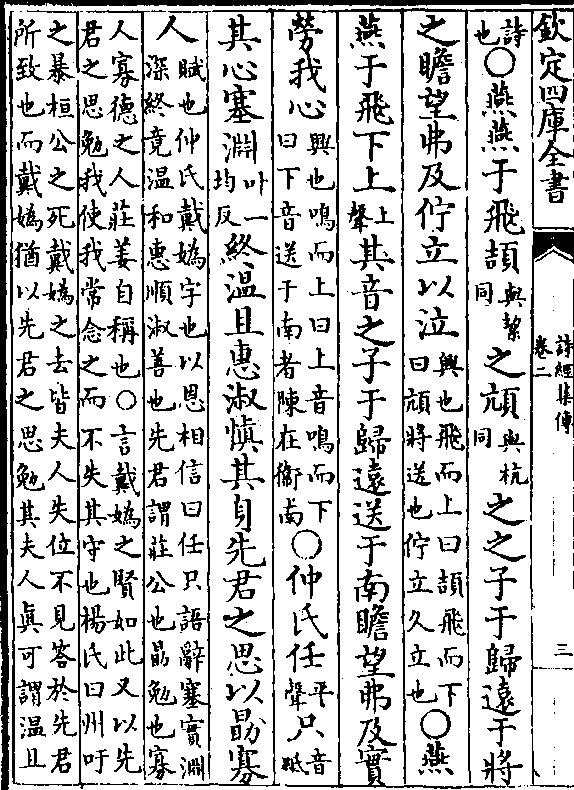 欽定四庫全書
詩經集傳
卷二
三
詩也○燕燕于飛頡與絜同之頏與杭同之之子于歸遠于將
之瞻望弗及佇立以泣興也飛而上曰頡飛而下曰頏將送也佇立久立也○燕
燕于飛下上上聲其音之子于歸遠送于南瞻望弗及實
勞我心興也鳴而上曰上音鳴而下曰下音送于南者陳在衛南○仲氏任平聲只音紙
其心塞淵叶一均反終温且惠淑慎其身先君之思以朂寡
人賦也仲氏戴媯字也以恩相信曰任只語辭塞實淵深終竟温和惠順淑善也先君謂莊公也朂勉也寡
人寡德之人莊姜自稱也○言戴媯之賢如此又以先君之思勉我使我常念之而不失其守也楊氏曰州吁
之暴桓公之死戴媯之去皆夫人失位不見答於先君所致也而戴媯猶以先君之思勉其夫人真可謂温且